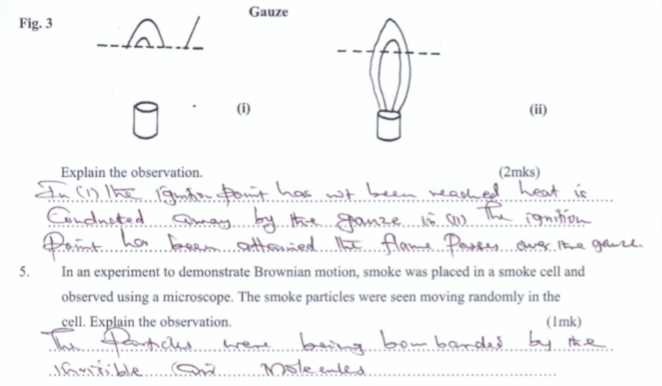 Fig. 3
Gauze
(i)
(ii)
Explain the observation. (2mks)
In (1) the ignition point has not been reached heat is
Conducted away by the gauze in (11) The ignition
Point has been attained the flame Passes over the gauze.
5. In an experiment to demonstrate Brownian motion, smoke was placed in a smoke cell and
observed using a microscope. The smoke particles were seen moving randomly in the
cell. Explain the observation. (1mk)
The Particles were being bombarded by the
invisible air Molecules